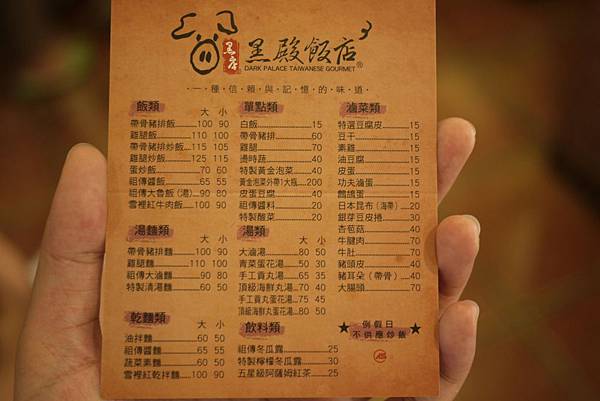 黑殿
黑殿飯店
DARK PALACE TAIWANESE GOURMET®
一・種・信・賴・與・記・憶・的・味・道
飯類 大 小
帶骨豬排飯 100 90
雞腿飯 110 100
帶骨豬排炒飯 115 105
雞腿炒飯 125 115
蛋炒飯 70 60
祖傳醬飯 65 55
祖傳大魯飯(湯) 90 80
雪裡紅牛肉飯 100 90
湯麵類
帶骨豬排麵 100 90
雞腿麵 110 100
祖傳大滷麵 90 80
特製清湯麵 60 50
乾麵類 大 小
油拌麵 60 50
祖傳醬麵 65 55
蔬菜素麵 60 50
雪裡紅乾拌麵 100 90
單點類
白飯 15
帶骨豬排 60
雞腿 70
邊時蔬 40
特製黃金泡菜 40
黃金泡菜外帶1大瓶 200
皮蛋豆腐 40
祖傳醬料 20
特製酸菜 20
湯類 大 小
大滷湯 80 50
青菜蛋花湯 50 30
手工貢丸湯 65 35
頂級海鮮丸湯 70 40
手工貢丸蛋花湯 75 45
頂級海鮮丸蛋花湯 80 50
飲料類
祖傳冬瓜露 25
特製檸檬冬瓜露 30
五星級阿薩姆紅茶 25
滷菜類
特選豆腐皮 15
豆干 15
素雞 15
油豆腐 15
皮蛋 15
功夫滷蛋 15
鵪鶉蛋 15
日本昆布(海帶) 20
銀芽豆皮捲 30
杏苞菇 40
牛腱肉 70
牛肚 70
豬頭皮 40
豬耳朵(帶骨) 40
大腸頭 70
★ 例假日 ★
不供應炒飯